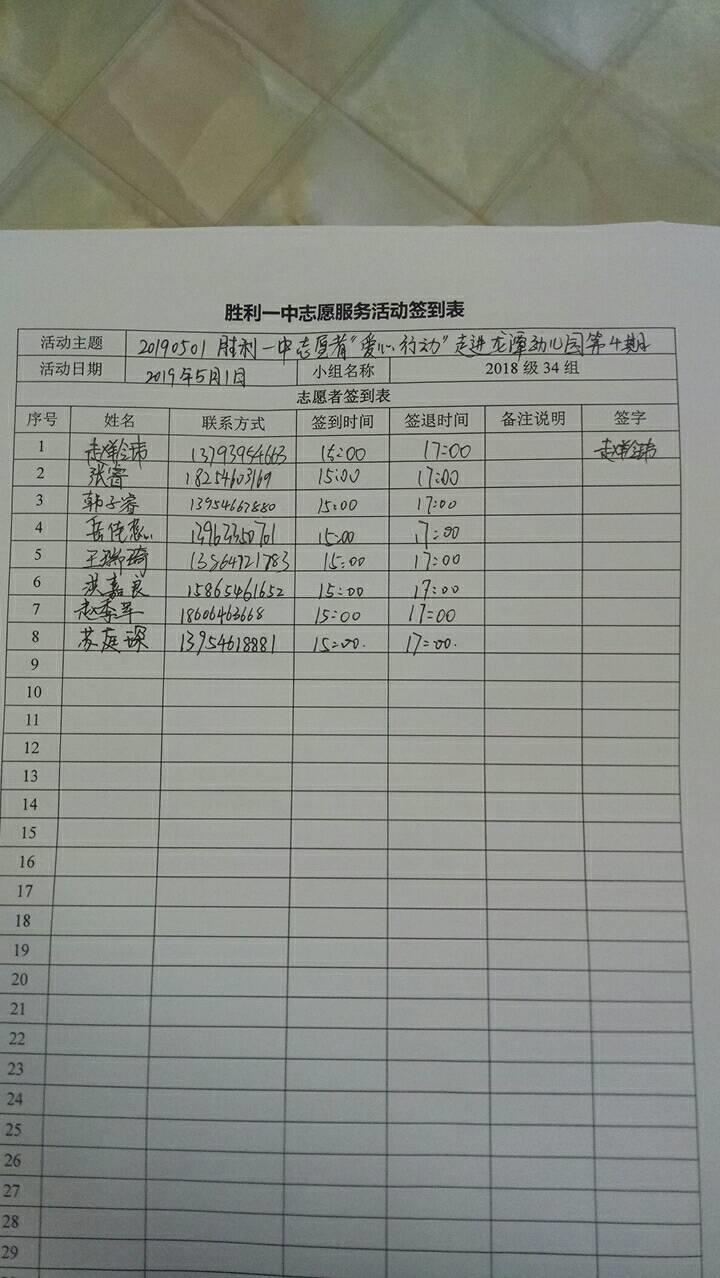 胜利一中志愿服务活动签到表
活动主题 20190501 胜利一中志愿者"爱心行动"走进龙潭幼儿园第4期
活动日期 2019年5月1日 小组名称 2018 级 34 组
志愿者签到表
序号 姓名 联系方式 签到时间 签退时间 备注说明 签字
1 13793954663 15:00 17:00
2 张睿 18254603169 15:00 17:00
3 韩子睿 13954667880 15:00 17:00
4 岳佳慧 13963350761 15:00 17:00
5 王瑞琦 13864721783 15:00 17:00
6 洪嘉良 15865461652 15:00 17:00
7 赵季苹 18606463668 15:00 17:00
8 苏庭琛 13954618881 15:00. 17:00.
9
10
11
12
13
14
15
16
17
18
19
20
21
22
23
24
25
26
27
28
29